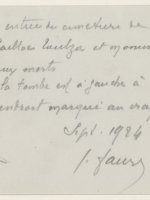 entrée du cimetière de
et monu
aux morts
la tombe est à gauche à
endroit marqué au cray
Sept. 1924
J. Faure